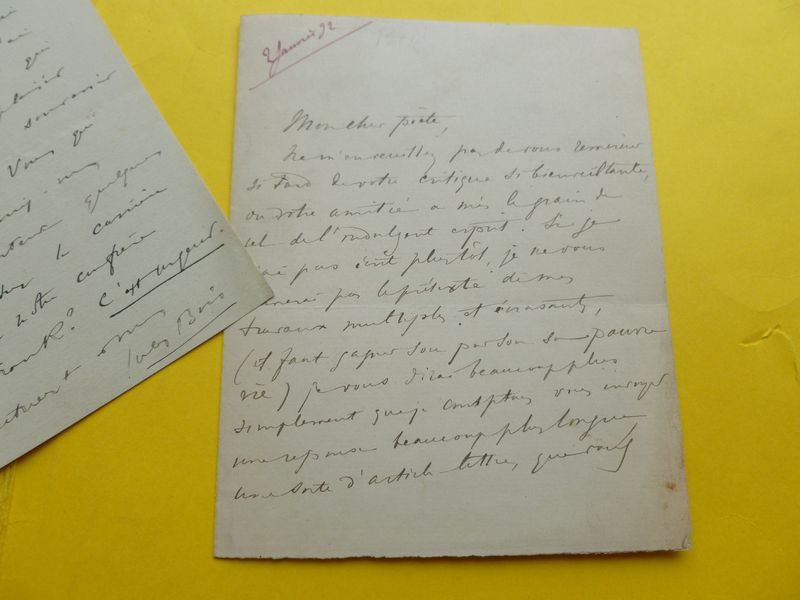 qui
plaisir
souvenir
Vous qui
quelques
le camérier
notre confrère
c'est urgent.
Jules Bois
2 Janvier 92
Mon cher poète,
Ne m'en veuillez pas de vous remercier
si tard de votre critique si bienveillante,
où votre amitié a mis le grain de
sel de l'indulgent esprit. Si je
n'ai pas écrit plus tôt, je ne vous
donnerai pas le prétexte de mes
travaux multiples et écrasants,
(il faut gagner sou par sou sa pauvre
vie) je vous dirai beaucoup plus
simplement que je comptais vous envoyer
une réponse beaucoup plus longue
une sorte d'article lettre, que vous